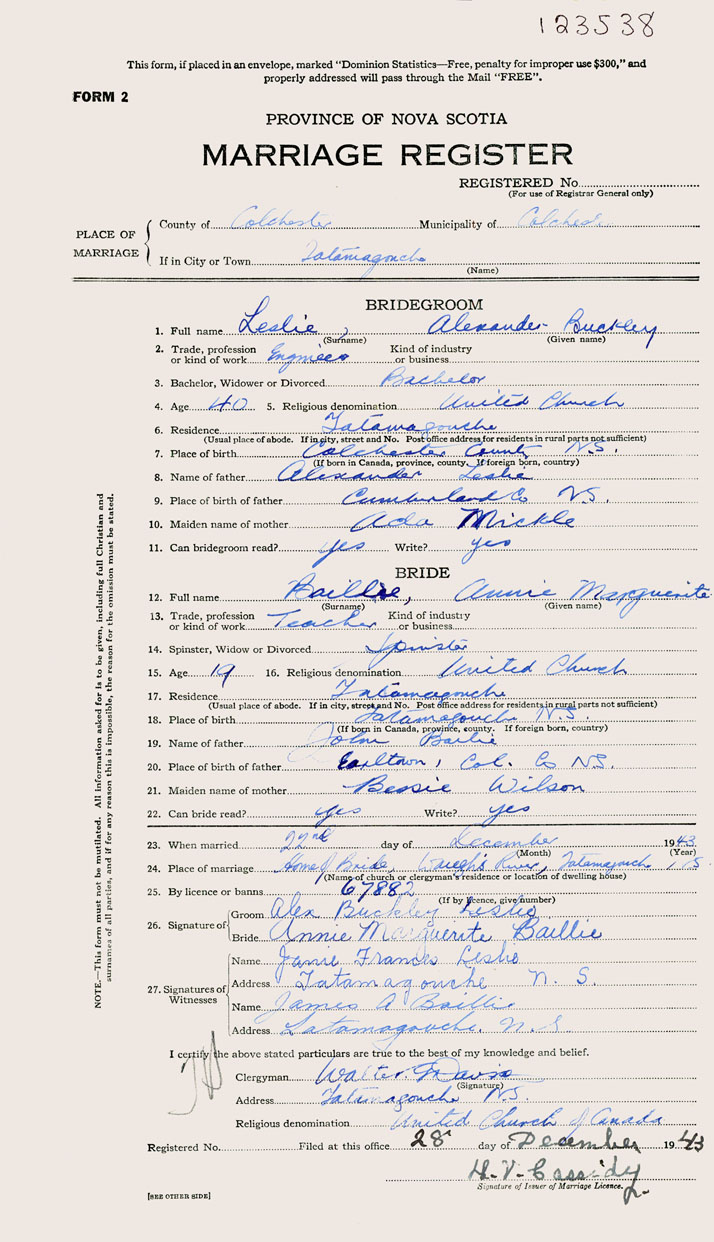 123538
This form, if placed in an envelope, marked "Dominion Statistics—Free, penalty for improper use $300," and
properly addressed will pass through the Mail "FREE".
FORM 2
PROVINCE OF NOVA SCOTIA
MARRIAGE REGISTER
REGISTERED No.
(For use of Registrar General only)
PLACE OF MARRIAGE
County of Colchester Municipality of Colchester
If in City or Town Tatamagouche
(Name)
BRIDEGROOM
1. Full name Leslie, Alexander Buckley
(Surname) (Given name)
2. Trade, profession or kind of work Engineer Kind of industry or business
3. Bachelor, Widower or Divorced Bachelor
4. Age 40 5. Religious denomination United Church
6. Residence Tatamagouche
(Usual place of abode. If in city, street and No. Post office address for residents in rural parts not sufficient)
7. Place of birth Colchester County N.S.
(If born in Canada, province, county. If foreign born, country)
8. Name of father Alexander Leslie
9. Place of birth of father Cumberland Co NS.
10. Maiden name of mother Ada Mickle
11. Can bridegroom read? yes Write? yes
BRIDE
12. Full name Baillie, Annie Marguerite
(Surname) (Given name)
13. Trade, profession or kind of work Teacher Kind of industry or business
14. Spinster, Widow or Divorced Spinster
15. Age 19 16. Religious denomination United Church
17. Residence Tatamagouche
(Usual place of abode. If in city, street and No. Post office address for residents in rural parts not sufficient)
18. Place of birth Tatamagouche N.S.
(If born in Canada, province, county. If foreign born, country)
19. Name of father John Bailie
20. Place of birth of father Earltown, Col. Co NS.
21. Maiden name of mother Bessie Wilson
22. Can bride read? yes Write? yes
23. When married 22nd day of December 1943
(Month) (Year)
24. Place of marriage Home of Bride, Waugh's River, Tatamagouche N.S.
(Name of church or clergyman's residence or location of dwelling house)
25. By licence or banns 67882
(If by licence, give number)
26. Signature of
Groom Alex Buckley Leslie
Bride Annie Marguerite Baillie
27. Signatures of Witnesses
Name Janie Frances Leslie
Address Tatamagouche N. S.
Name James A Baillie
Address Tatamagouche, N.S.
I certify the above stated particulars are true to the best of my knowledge and belief.
Clergyman Walter Davis
(Signature)
Address Tatamagouche NS.
Religious denomination United Church of Canada
Registered No. Filed at this office 28 day of December 1943
H. V. Cassidy
Signature of Issuer of Marriage Licence.
[SEE OTHER SIDE]
NOTE.—This form must not be mutilated. All information asked for is to be given, including full Christian and
surnames of all parties, and if for any reason this is impossible, the reason for the omission must be stated.